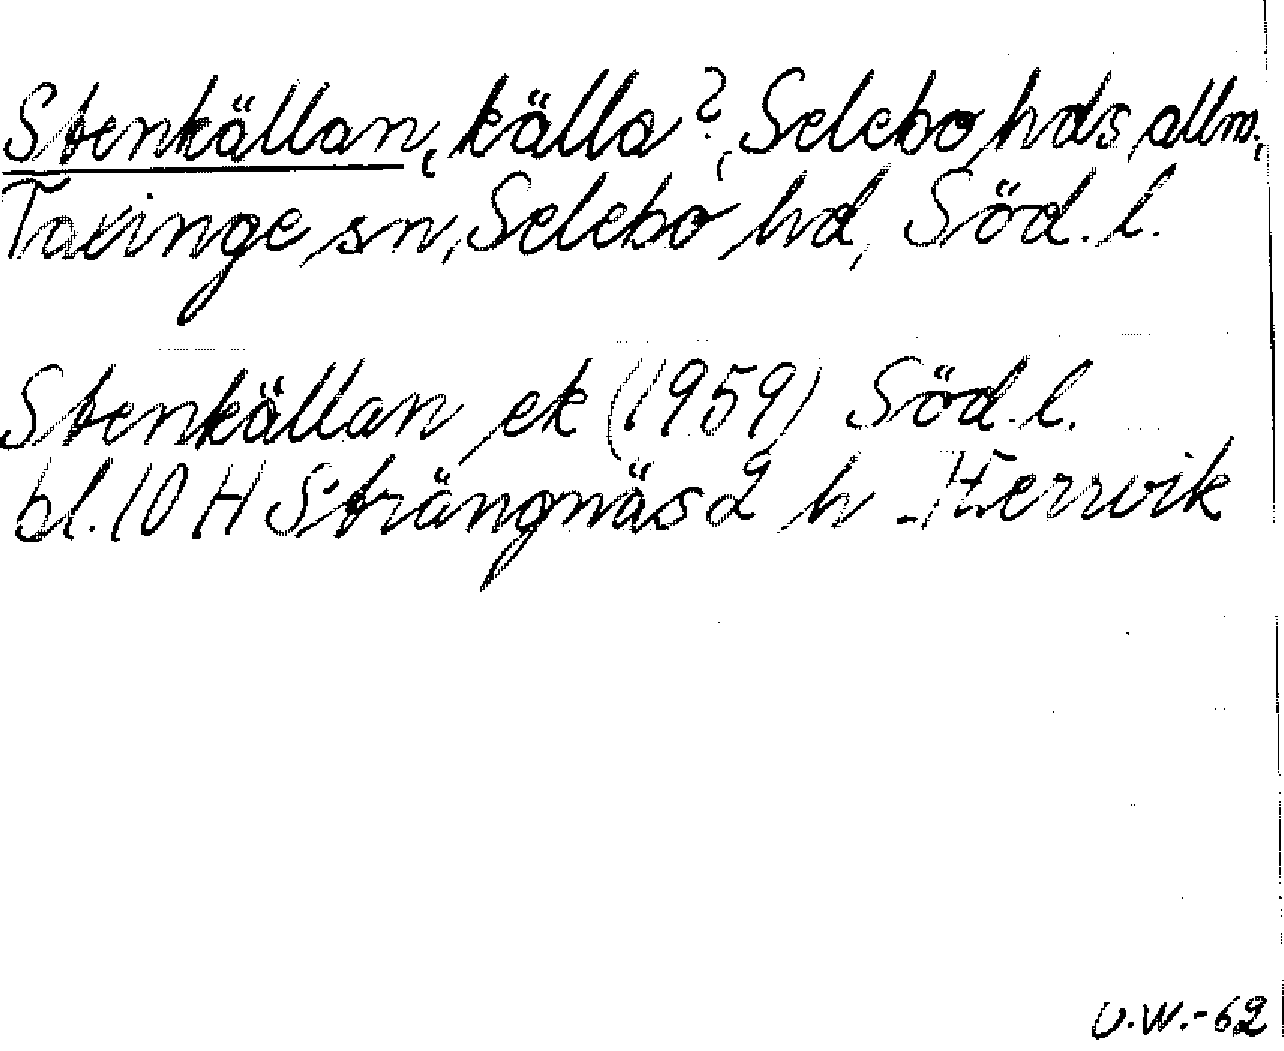 Stenkällan, källa?, Selebo hds allm.,
Taxinge sn, Selebo hd, Söd. l.
Stenkällan ek (1959) Söd. l.
bl. 10 H Strängnäs 2 h - Herrvik
U.W.-62